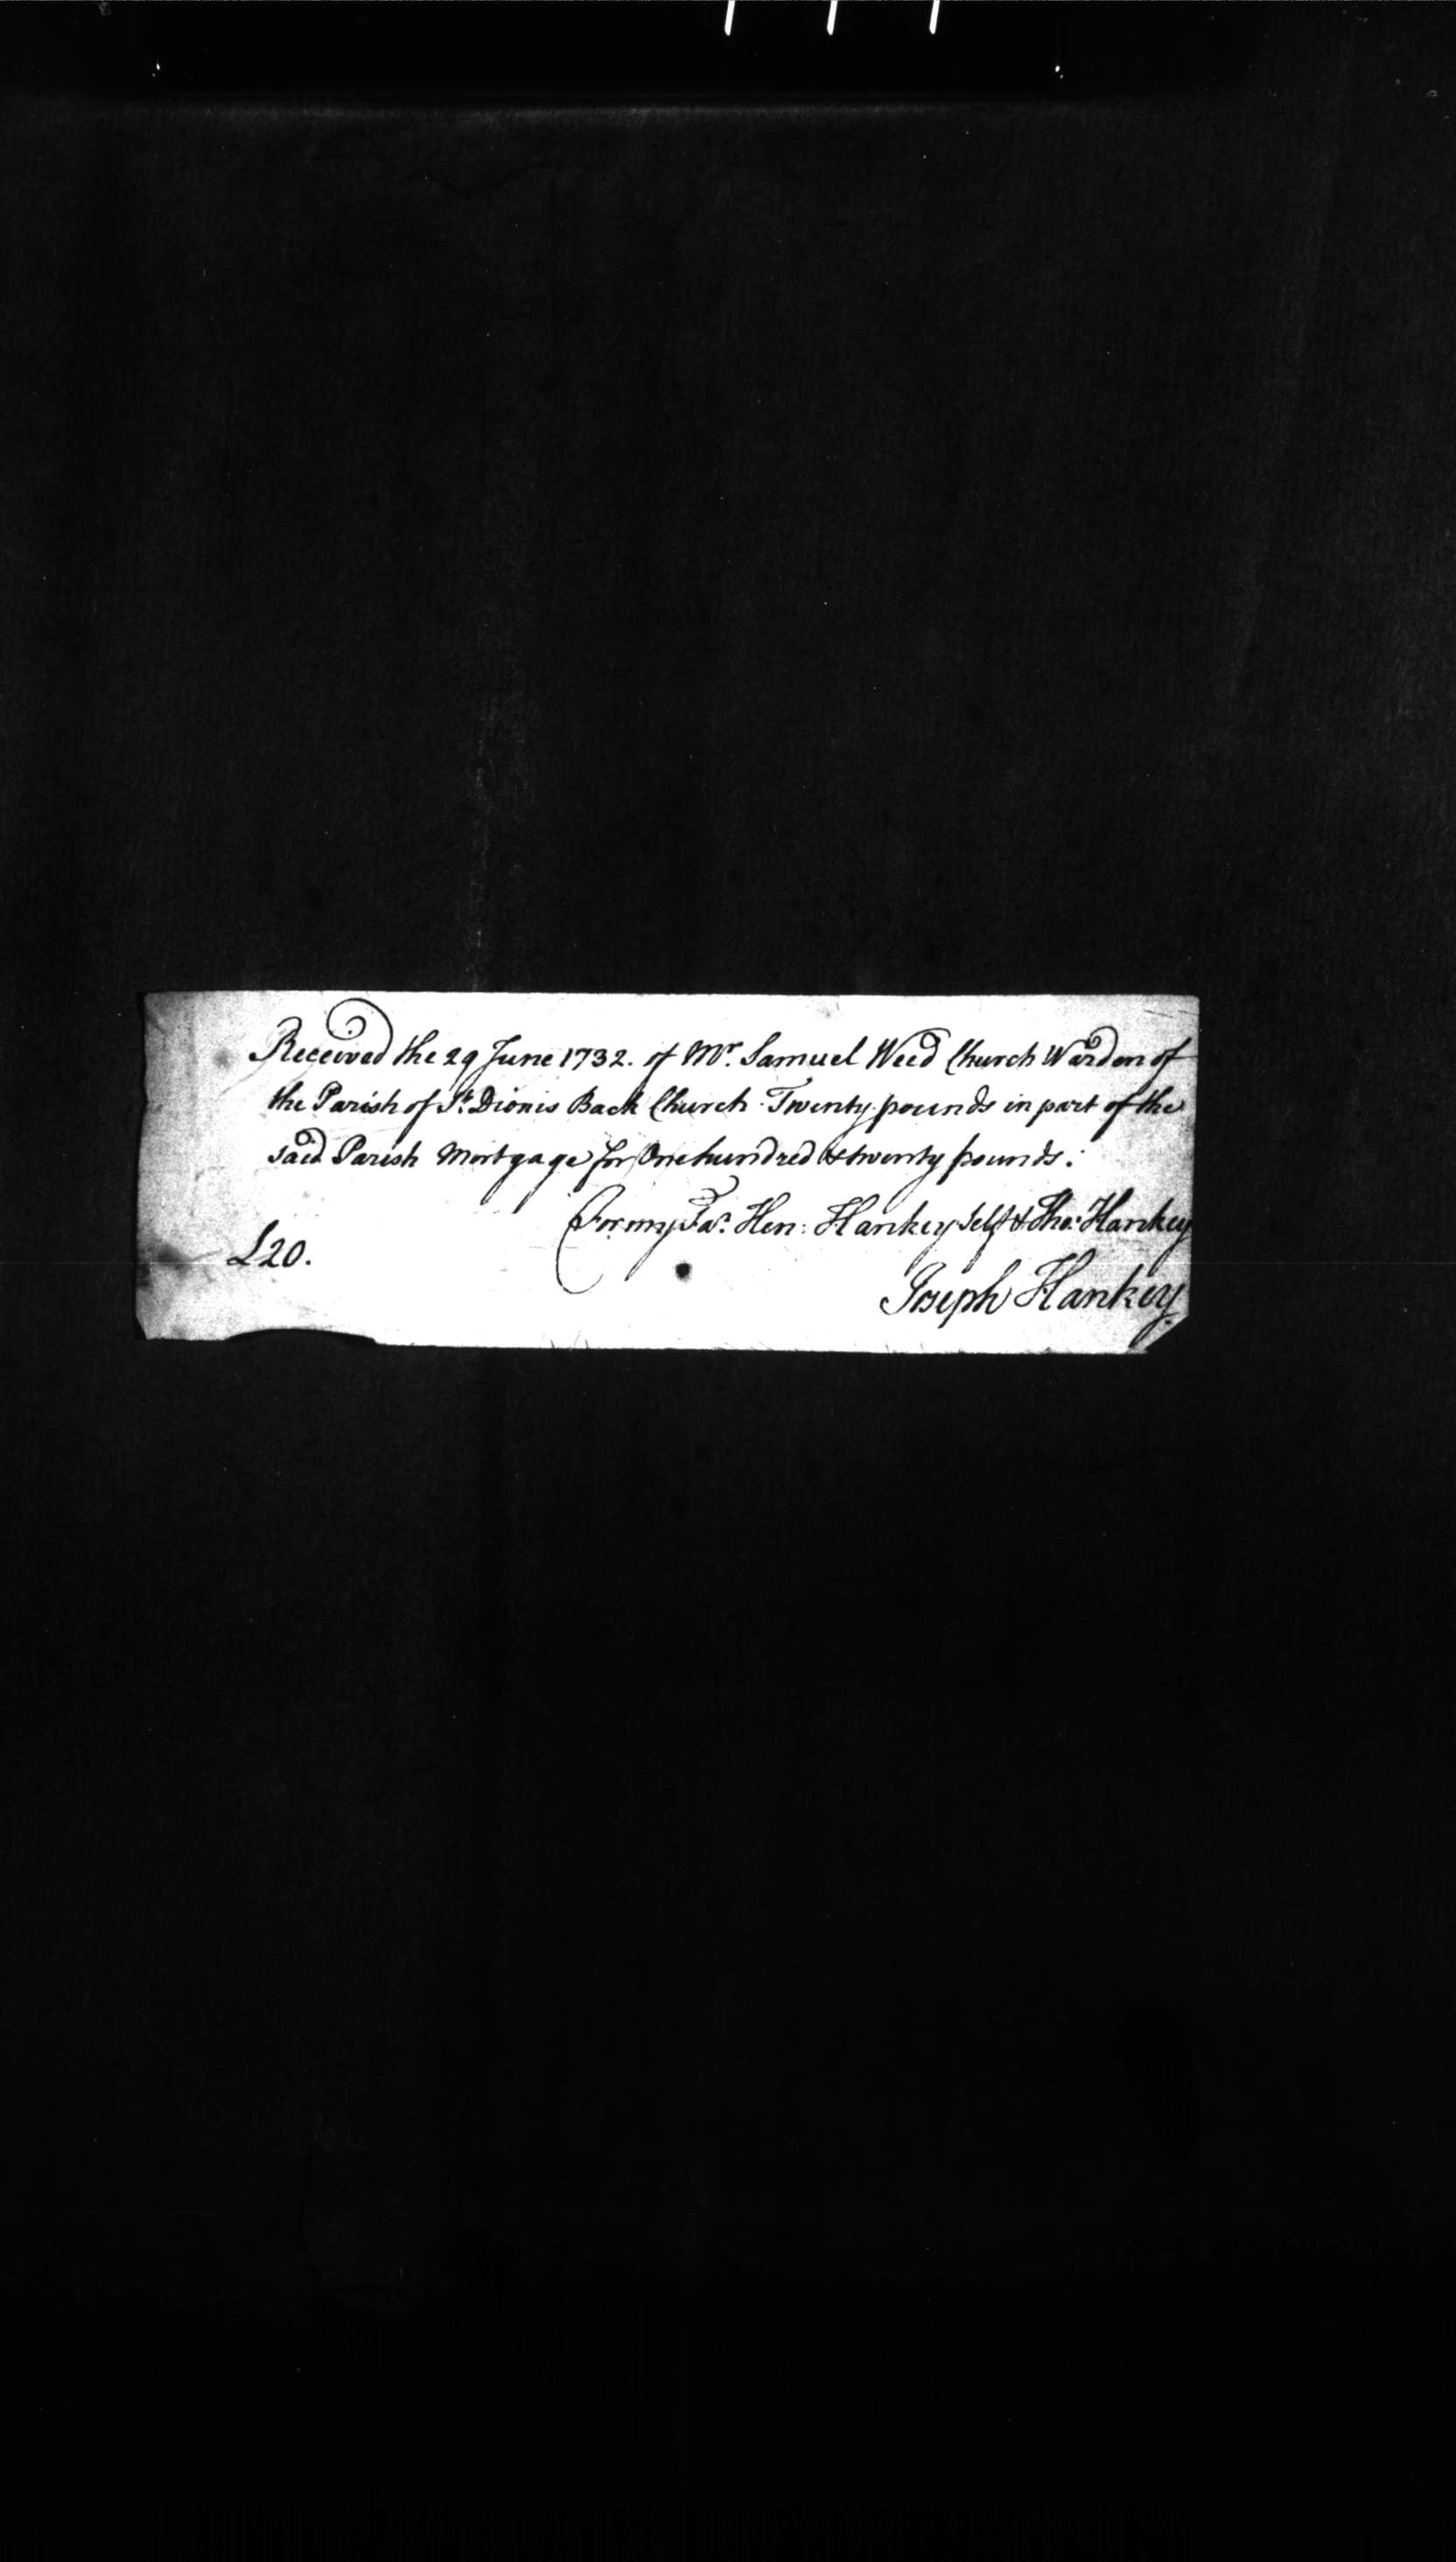 Received the 29 June 1732. of Mr. Samuel Weed Church Warden of
the Parish of St. Dionis Back Church Twenty pounds in part of the
said Parish Mortgage for One hundred & twenty pounds.
For my Fa:r Hen: Hankey Self & Tho: Hankey
£20.
Joseph Hankey